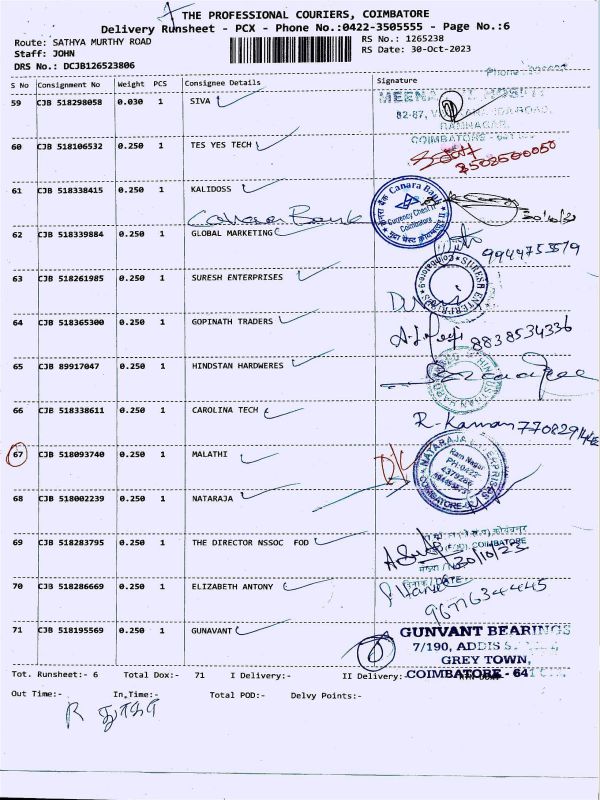 THE PROFESSIONAL COURIERS, COIMBATORE
Delivery Runsheet - PCX - Phone No.:0422-3505555 - Page No.:6
Route: SATHYA MURTHY ROAD
RS No.: 1265238
Staff: JOHN
RS Date: 30-Oct-2023
DRS No.: DCJB126523806
S No Consignment No Weight PCS Consignee Details Signature
59 CJB 518298058 0.030 1 SIVA
82-87,
RAMNAGAR,
COIMBATORE - 641
60 CJB 518106532 0.250 1 TES YES TECH
61 CJB 518338415 0.250 1 KALIDOSS
Canara Bank
Canara Bank
Currency Chest II
Coimbatore
30/10/23
62 CJB 518339884 0.250 1 GLOBAL MARKETING
63 CJB 518261985 0.250 1 SURESH ENTERPRISES
SURESH ENTERPRISES
64 CJB 518365300 0.250 1 GOPINATH TRADERS
8838534336
65 CJB 89917047 0.250 1 HINDSTAN HARDWERES
66 CJB 518338611 0.250 1 CAROLINA TECH
R. Kannan
67 CJB 518093740 0.250 1 MALATHI
NATARAJA ENTERPRISES
Ram Nagar
PH:0422-
COIMBATORE
68 CJB 518002239 0.250 1 NATARAJA
69 CJB 518283795 0.250 1 THE DIRECTOR NSSOC FOD
COIMBATORE
30/10/23
DATE
70 CJB 518286669 0.250 1 ELIZABETH ANTONY
71 CJB 518195569 0.250 1 GUNAVANT
GUNVANT BEARINGS
7/190, ADDIS
GREY TOWN,
COIMBATORE - 641
Tot. Runsheet:- 6 Total Dox:- 71 I Delivery:- II Delivery:-
Out Time:- In,Time:- Total POD:- Delvy Points:-